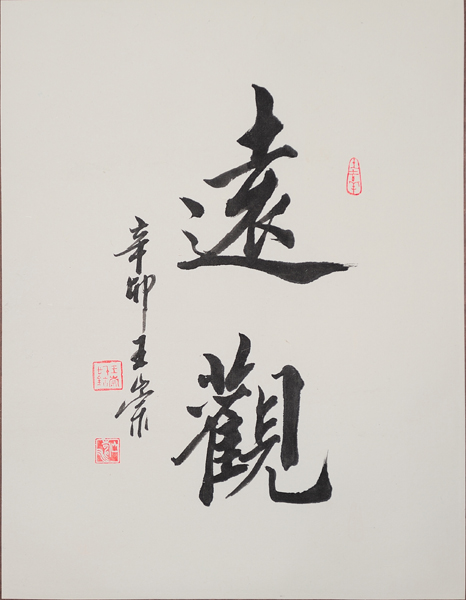 遠觀
辛卯王崇